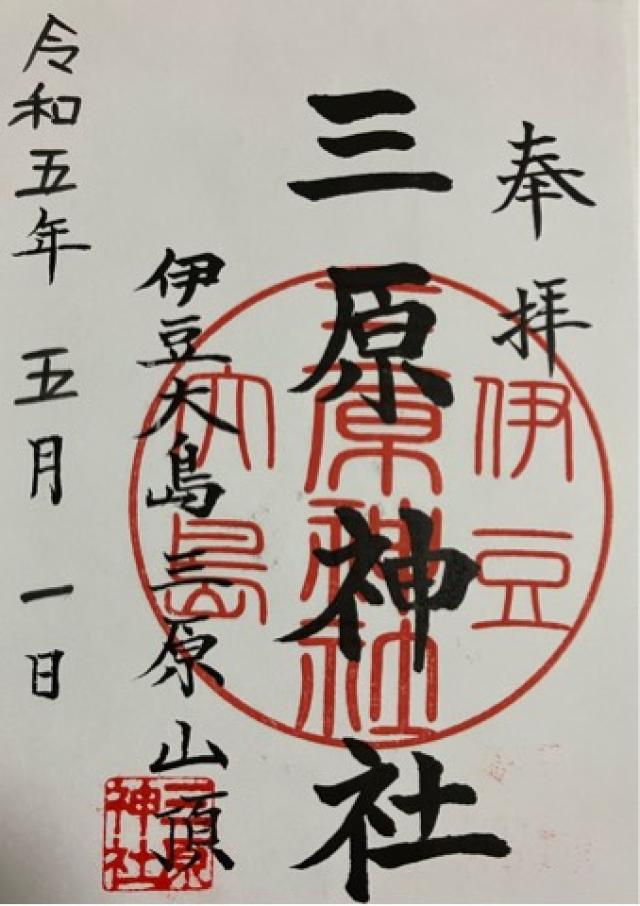 奉拝
三原神社
伊豆大島三原山頂
令和五年 五月 一日
伊豆
三原神社
大島
三原
神社